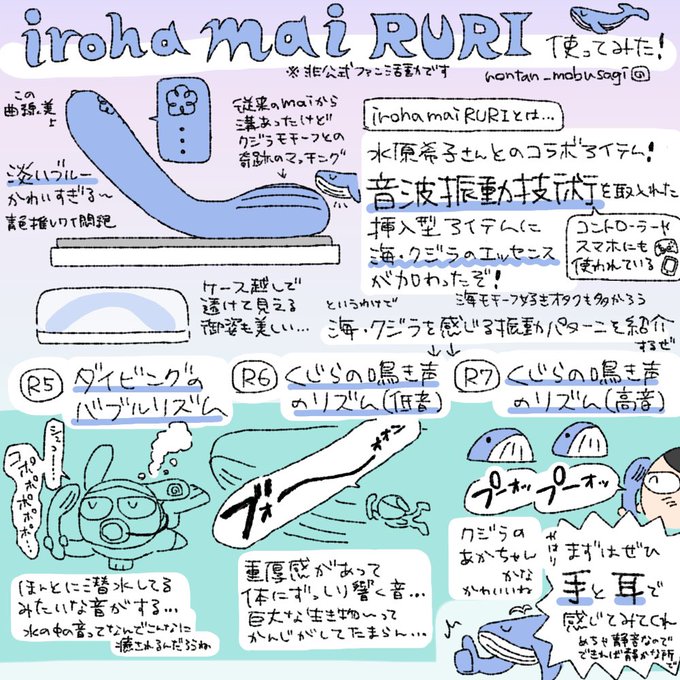 iroha mai RURI 使ってみた!
※非公式ファン活動です
nontan_mobusagi
この
曲線美よ
従来のmaiから
溝あったけど
クジラモチーフとの
奇跡のマッチング
淡いブルー
かわいすぎる〜
青色推しワイ悶絶
ケース越しで
透けて見える
御姿も美しい…
iroha mai RURIとは…
水原希子さんとのコラボアイテム!
音波振動技術を取入れた
挿入型アイテムに
海・クジラのエッセンス
が加わったぞ!
コントローラーや
スマホにも
使われている
海モチーフ好きオタクも多かろう
というわけで
海・クジラを感じる振動パターンを紹介
するぜ
R5 ダイビングの
バブルリズム
シュー…
コポ
ポポポポ…
ほんとに潜水してる
みたいな音がする…
水の中の音ってなんでこんなに
癒されるんだろうね
R6 くじらの鳴き声
のリズム(低音)
ブォーーーオオン
重厚感があって
体にずっしり響く音…
巨大な生き物〜って
かんじがしてたまらん…
R7 くじらの鳴き声
のリズム(高音)
プーオッ プーオッ
クジラの
あかちゃん
かな
かわいいね
やはり
まずはぜひ
手と耳で
感じてみてくれ
めちゃ静音なので
できれば静かな所で